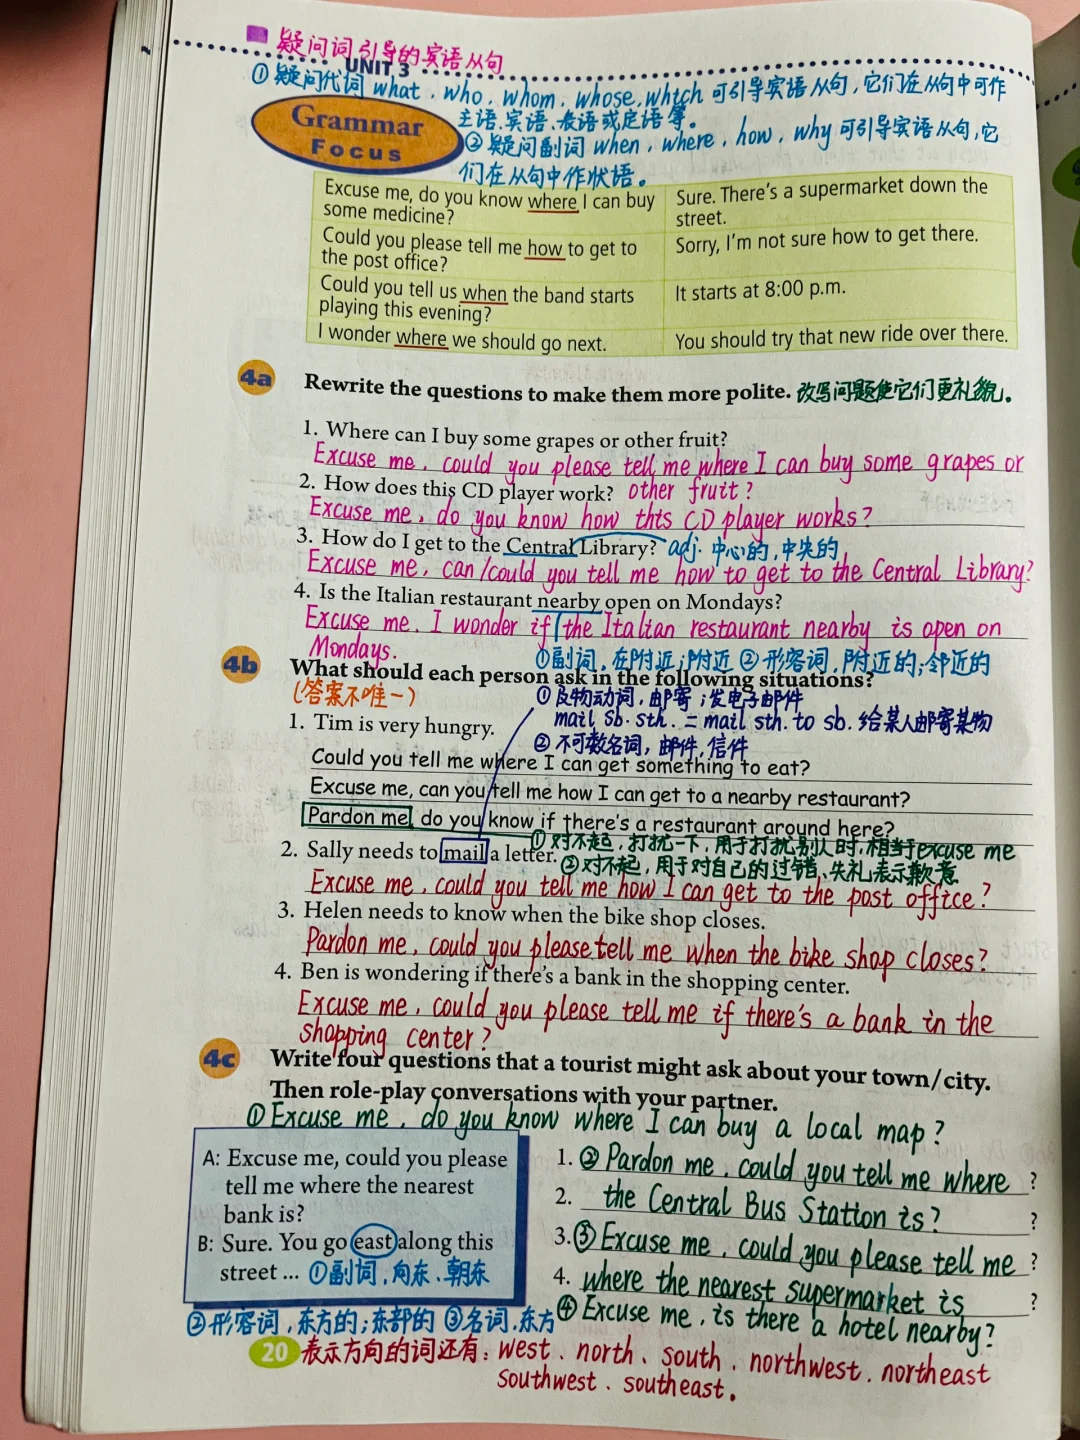 疑问词引导的宾语从句
UNIT 3
①疑问代词 what、who、whom、whose、which 可引导宾语从句,它们在从句中可作
主语、宾语、表语或定语等。
Grammar
Focus
②疑问副词 when、where、how、why 可引导宾语从句,它
们在从句中作状语。
Excuse me, do you know where I can buy
some medicine?
Sure. There's a supermarket down the
street.
Could you please tell me how to get to
the post office?
Sorry, I'm not sure how to get there.
Could you tell us when the band starts
playing this evening?
It starts at 8:00 p.m.
I wonder where we should go next.
You should try that new ride over there.
4a Rewrite the questions to make them more polite. 改写问题使它们更礼貌。
1. Where can I buy some grapes or other fruit?
Excuse me, could you please tell me where I can buy some grapes or
other fruit?
2. How does this CD player work?
Excuse me, do you know how this CD player works?
3. How do I get to the Central Library? adj. 中心的,中央的
Excuse me, can/could you tell me how to get to the Central Library?
4. Is the Italian restaurant nearby open on Mondays?
Excuse me. I wonder if the Italian restaurant nearby is open on
Mondays.
①副词,在附近;附近 ②形容词,附近的;邻近的
4b What should each person ask in the following situations?
(答案不唯一)
①及物动词,邮寄;发电子邮件
mail sb. sth. = mail sth. to sb. 给某人邮寄某物
②不可数名词,邮件,信件
1. Tim is very hungry.
Could you tell me where I can get something to eat?
Excuse me, can you tell me how I can get to a nearby restaurant?
Pardon me, do you know if there's a restaurant around here?
①对不起,打扰一下,用于打扰别人时,相当于excuse me
2. Sally needs to mail a letter.
②对不起,用于对自己的过错、失礼表示歉意
Excuse me, could you tell me how I can get to the post office?
3. Helen needs to know when the bike shop closes.
Pardon me, could you please tell me when the bike shop closes?
4. Ben is wondering if there's a bank in the shopping center.
Excuse me, could you please tell me if there's a bank in the
shopping center?
4c Write four questions that a tourist might ask about your town/city.
Then role-play conversations with your partner.
①Excuse me, do you know where I can buy a local map?
A: Excuse me, could you please
tell me where the nearest
bank is?
B: Sure. You go east along this
street ... ①副词,向东、朝东
②形容词,东方的;东部的 ③名词,东方
1. ②Pardon me, could you tell me where ?
2. the Central Bus Station is? ?
3. ③Excuse me, could you please tell me ?
4. where the nearest supermarket is ?
④Excuse me, is there a hotel nearby?
20 表示方向的词还有:west、north、south、northwest、northeast
southwest、southeast。